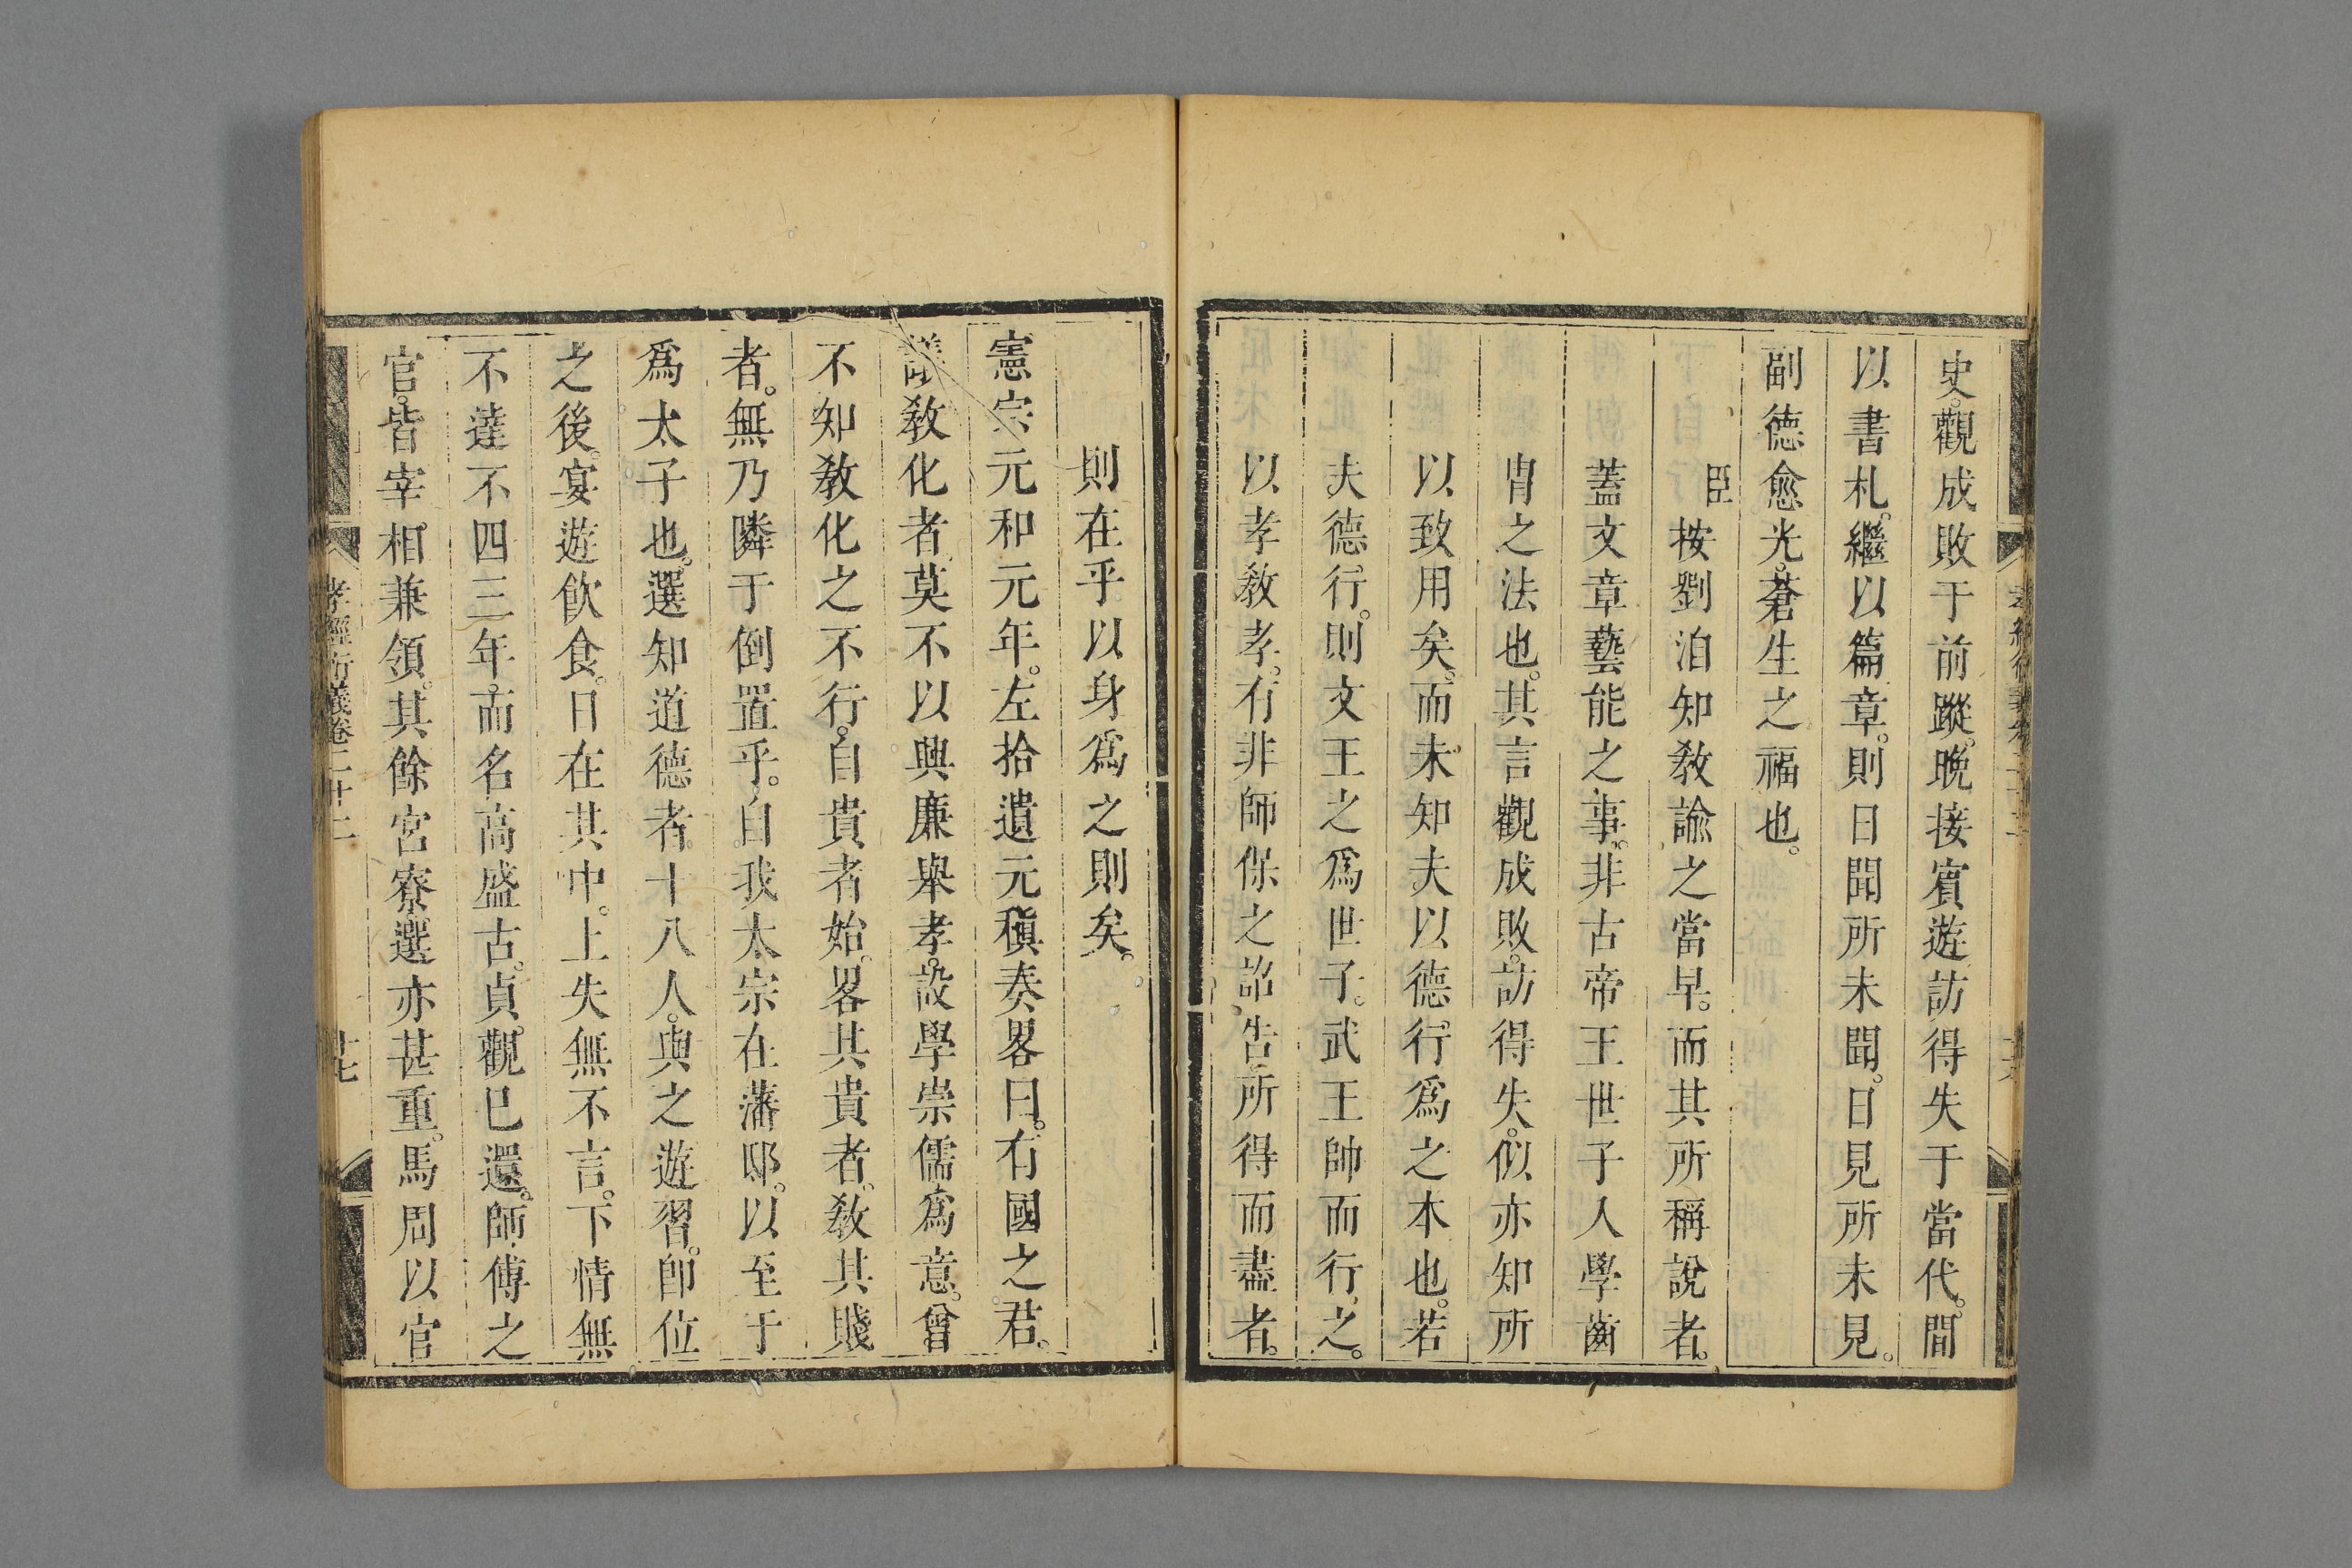 史。觀成敗于前蹤。晚接賓遊。訪得失于當代。間
以書札。繼以篇章。則日聞所未聞。日見所未見。
副德愈光。蒼生之福也。
臣按劉洎知敎諭之當早。而其所稱說者。
蓋文章藝能之事。非古帝王世子入學齒
胄之法也。其言觀成敗。訪得失。似亦知所
以致用矣。而未知夫以德行爲之本也。若
夫德行。則文王之爲世子。武王帥而行之。
以孝敎孝。有非師保之詔告所得而盡者。
則在乎以身爲之則矣。
憲宗元和元年。左拾遺元稹奏畧曰。有國之君。
議敎化者。莫不以興廉舉孝。設學崇儒爲意。曾
不知敎化之不行。自貴者始。畧其貴者。敎其賤
者。無乃隣于倒置乎。自我太宗在藩邸。以至于
爲太子也。選知道德者十八人。與之遊習。卽位
之後。宴遊飲食。日在其中。上失無不言。下情無
不達。不四三年。而名高盛古。貞觀已還。師傅之
官。皆宰相兼領。其餘宮寮選亦甚重。馬周以官
孝經衍義卷二十二
十七